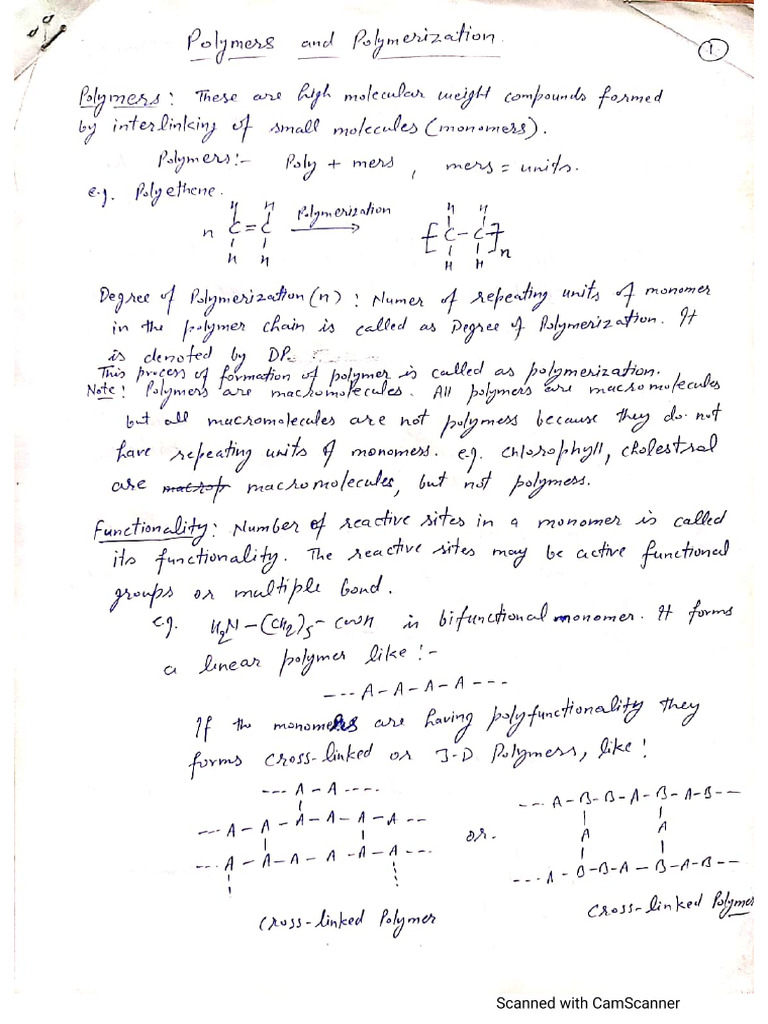 Polymers and Polymerization.
1
Polymers: These are high molecular weight compounds formed
by interlinking of small molecules (monomers).
Polymers:- Poly + mers, mers = units.
e.g. Polyethene.
H H Polymerization H H
n C = C [ C - C ]n
H H H H
Degree of Polymerization (n): Numer of repeating units of monomer
in the polymer chain is called as Degree of Polymerization. It
is denoted by DP.
This process of formation of polymer is called as polymerization.
Note: Polymers are macromolecules. All polymers are macromolecules
but all macromolecules are not polymess because they do not
have repeating units of monomess. e.g. chlorophyll, cholestral
are macrop macromolecules, but not polymess.
Functionality: Number of reactive sites in a monomer is called
its functionality. The reactive sites may be active functional
groups or multiple bond.
e.g. H2N-(CH2)5-COOH is bifunctional monomer. It forms
a linear polymer like:-
---A-A-A-A---
If the monomers are having polyfunctionality they
forms cross-linked or 3-D Polymers, like:
---A-A---- ---A-B-B-A-B-A-B---
---A-A-A-A-A-A--- or. A A
---A-A-A-A-A-A--- ---A-B-B-A-B-A-B---
Cross-linked Polymer
Cross-linked Polymer
Scanned with CamScanner